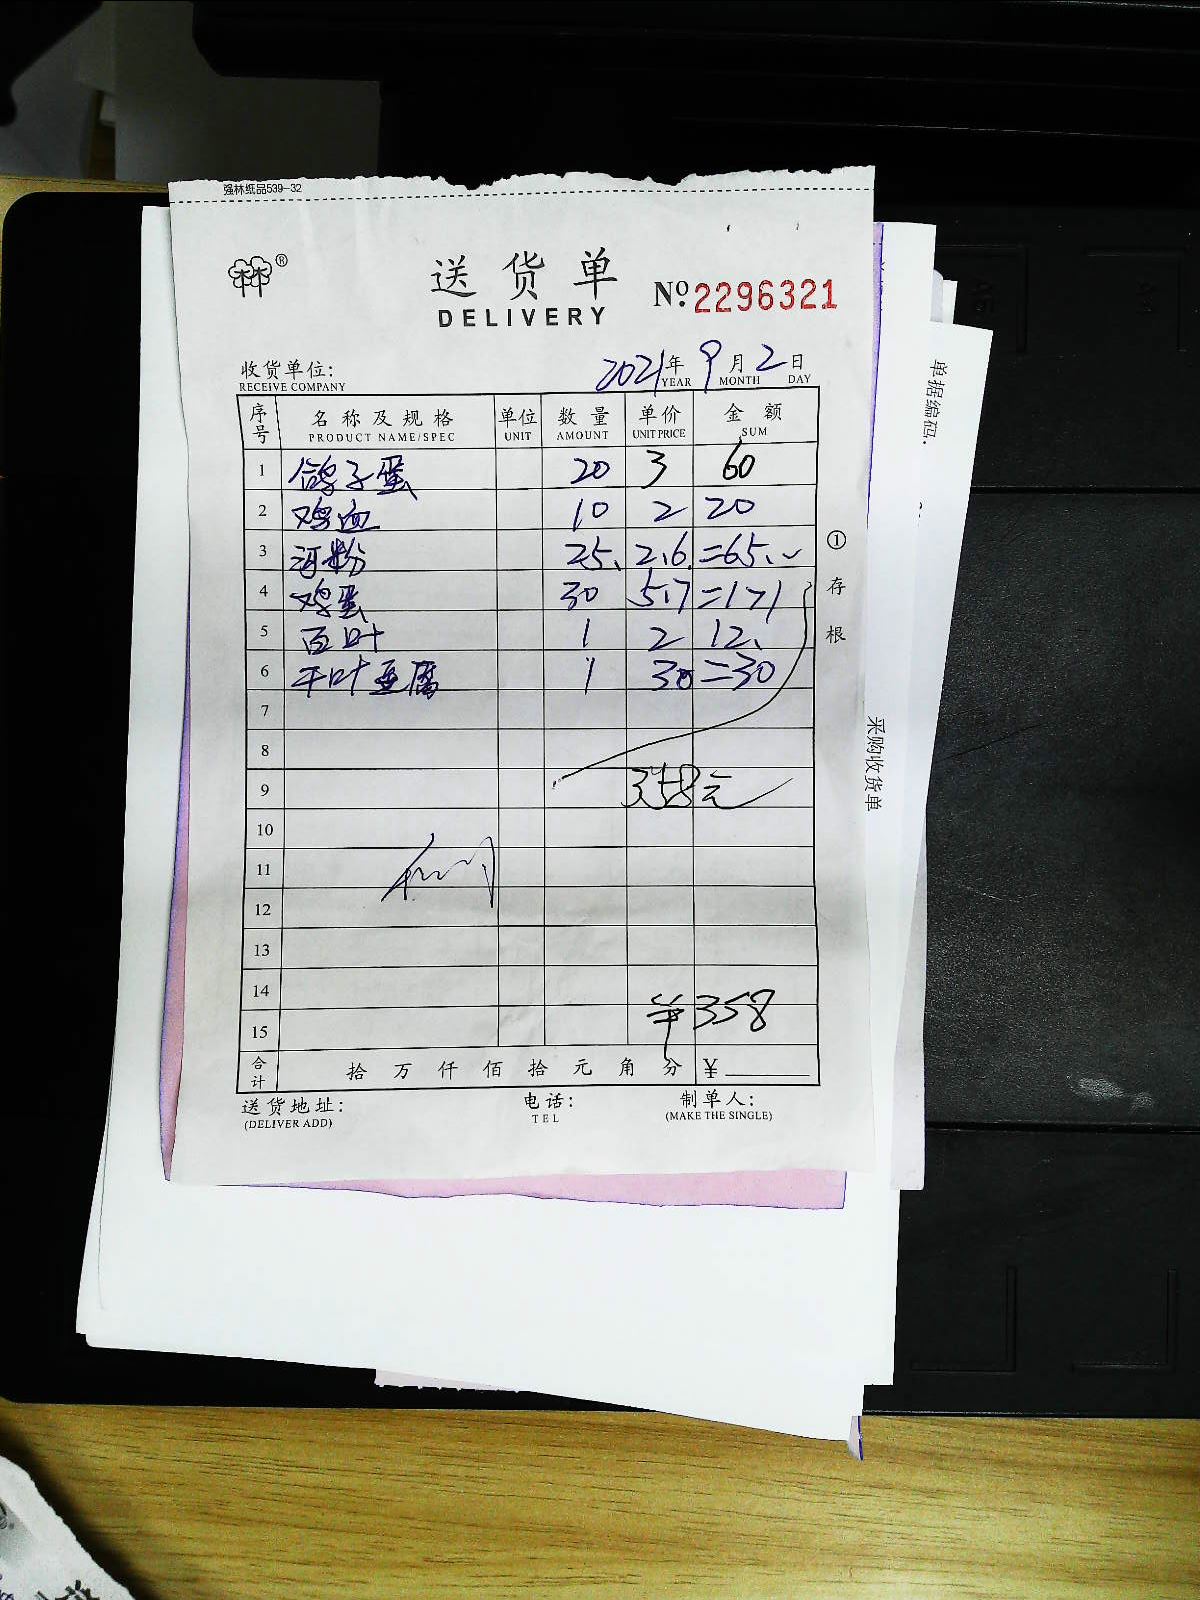 强林纸品539-32
®
送货单
DELIVERY
№ 2296321
收货单位:
RECEIVE COMPANY
2021年 9月 2日
YEAR MONTH DAY
序号 名称及规格 单位 数量 单价 金额
PRODUCT NAME/SPEC UNIT AMOUNT UNIT PRICE SUM
1 鸽子蛋 20 3 60
2 鸡血 10 2 20
3 河粉 25、 2.6 =65、
4 鸡蛋 30 5.7 =171
5 百叶 1 2 12、
6 千叶豆腐 1 30 =30
7
8
9 358元
10
11
12
13
14
15 ¥358
合计 拾 万 仟 佰 拾 元 角 分 ¥
送货地址: 电话: 制单人:
(DELIVER ADD) TEL (MAKE THE SINGLE)
①存根
单据编码:
采购收货单